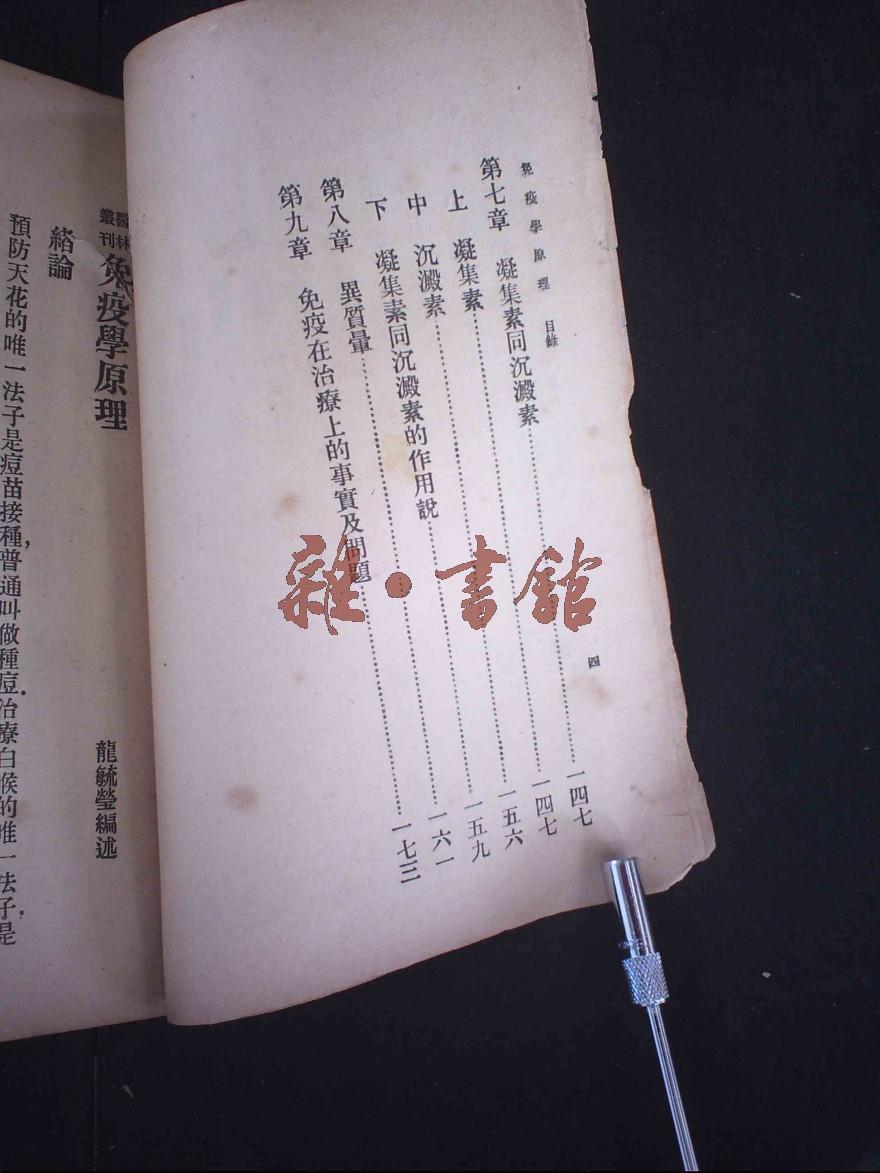 免疫學原理 目錄 四
第七章 凝集素同沉澱素……一四七
上 凝集素……一四七
中 沉澱素……一五六
下 凝集素同沉澱素的作用說……一五九
第八章 異質暈……一六一
第九章 免疫在治療上的事實及問題……一七三
醫林叢刊 免疫學原理
龍毓瑩編述
緒論
預防天花的唯一法子是痘苗接種，普通叫做種痘．治療白喉的唯一法子，是
雜·書館